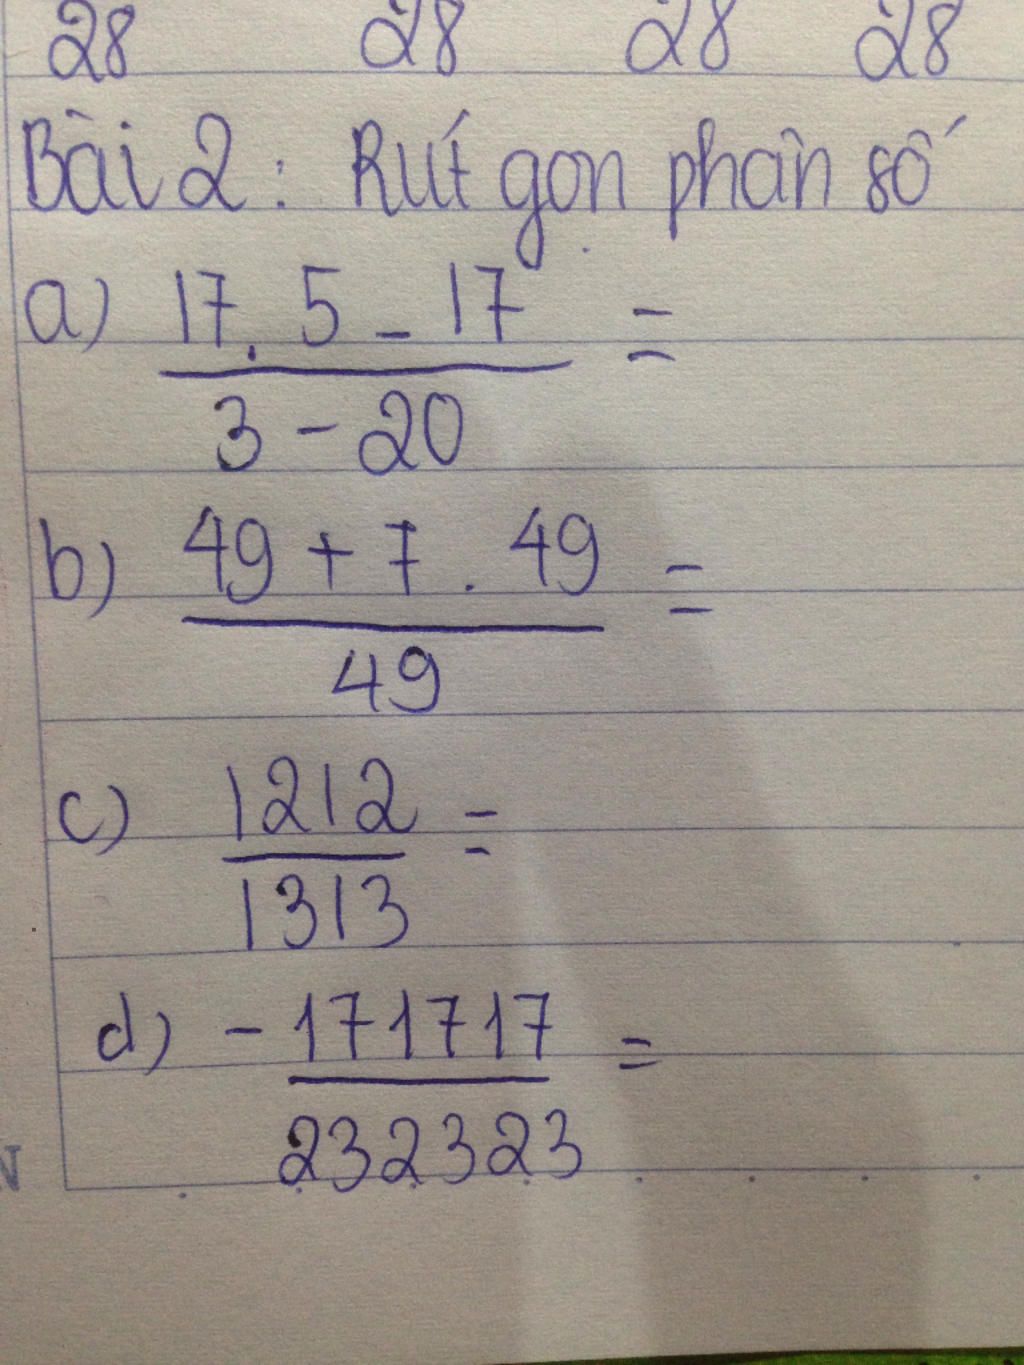 28 28 28 28
Bài 2: Rút gọn phân số
a) 17.5-17 =
3-20
b) 49+7.49 =
49
c) 1212 =
1313
d) -171717 =
232323
N